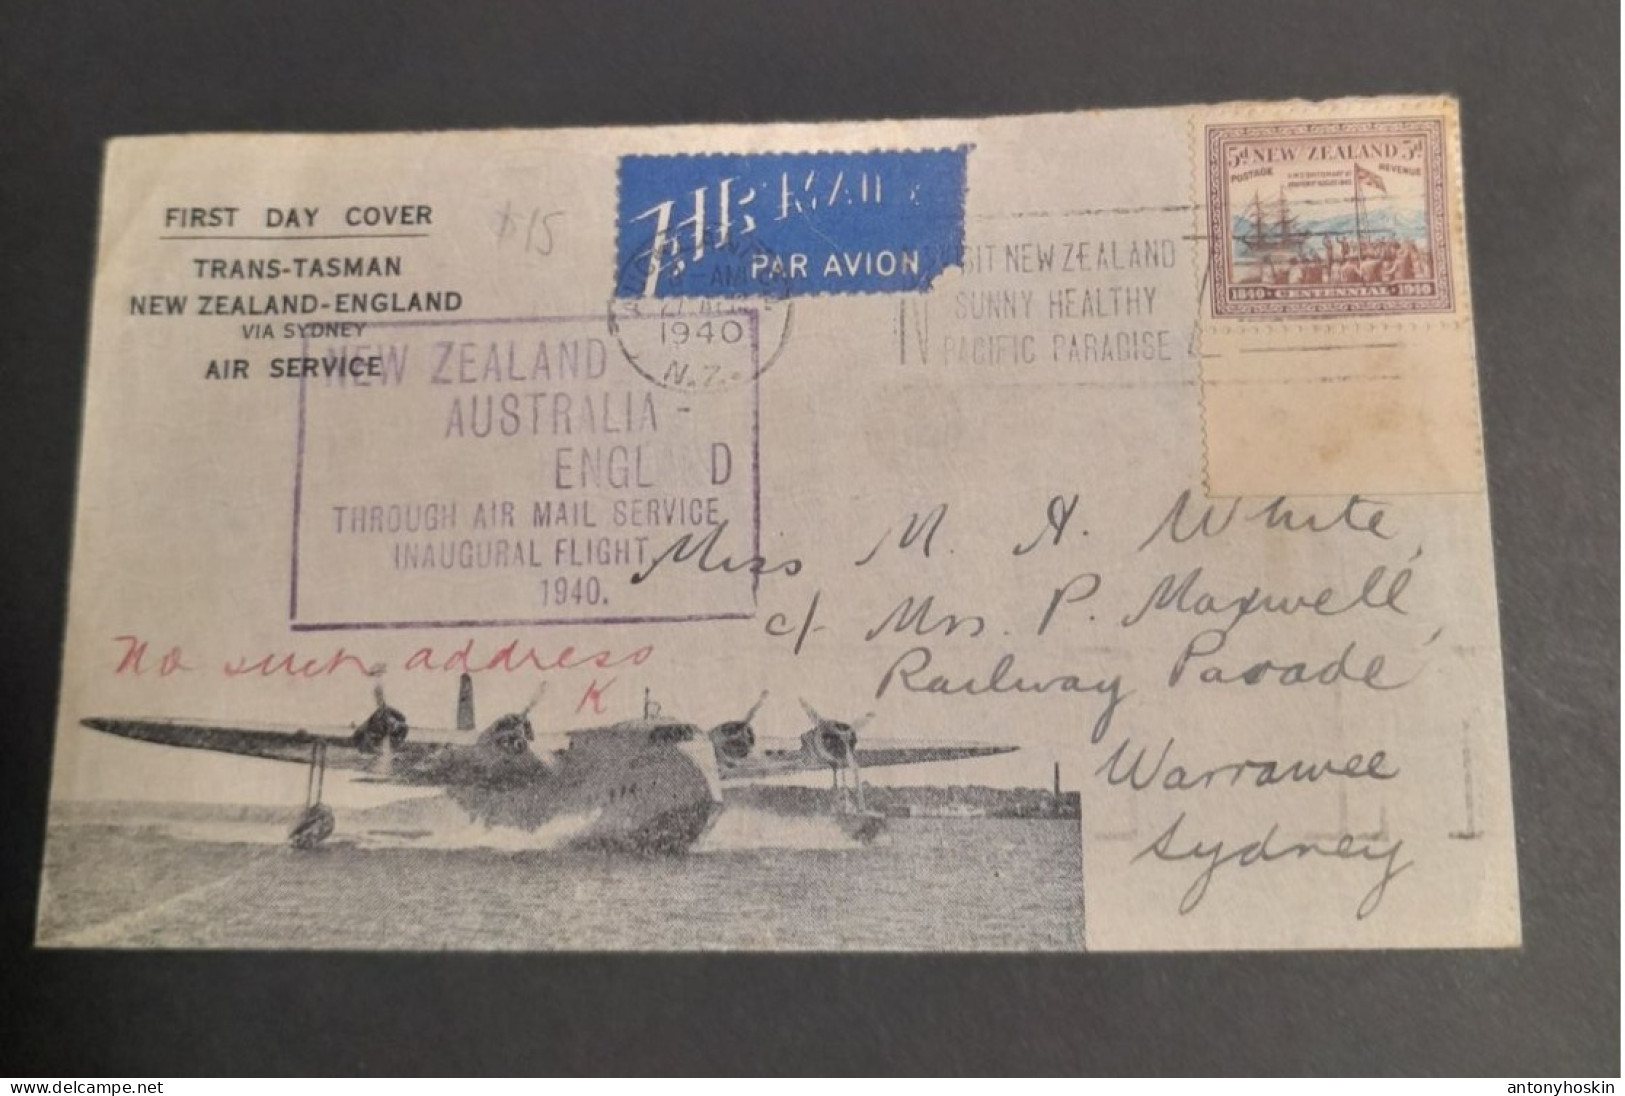 FIRST DAY COVER
TRANS-TASMAN
NEW ZEALAND-ENGLAND
VIA SYDNEY
AIR SERVICE
$15
AIR MAIL
PAR AVION
AM
1940
N.Z.
VISIT NEW ZEALAND
SUNNY HEALTHY
PACIFIC PARADISE
5d NEW ZEALAND 5d
POSTAGE REVENUE
1840 · CENTENNIAL · 1940
NEW ZEALAND
AUSTRALIA -
ENGLAND
THROUGH AIR MAIL SERVICE
INAUGURAL FLIGHT
1940.
Miss M. A. White,
c/- Mrs. P. Maxwell,
Railway Parade,
Warrawee
Sydney
No such address
K
www.delcampe.net
antonyhoskin